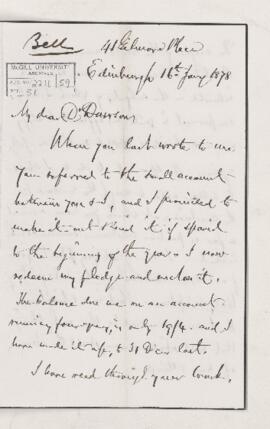 Bell
41 Gilmore Place
McGILL UNIVERSITY
ARCHIVES
ACC. NO. 2211 59
REF. 51
Edinburgh 16th Jany 1878
My dear Dr Dawson
When you last wrote to me
you referred to the small account
between you & I, and I promised to
make it out & send it if spared
to the beginning of the year. I now
redeem my pledge and enclose it.
The balance due me on an account
running four years, is only 19/4. and I
have made it up, to 31 Decr last.
I have read through your book,